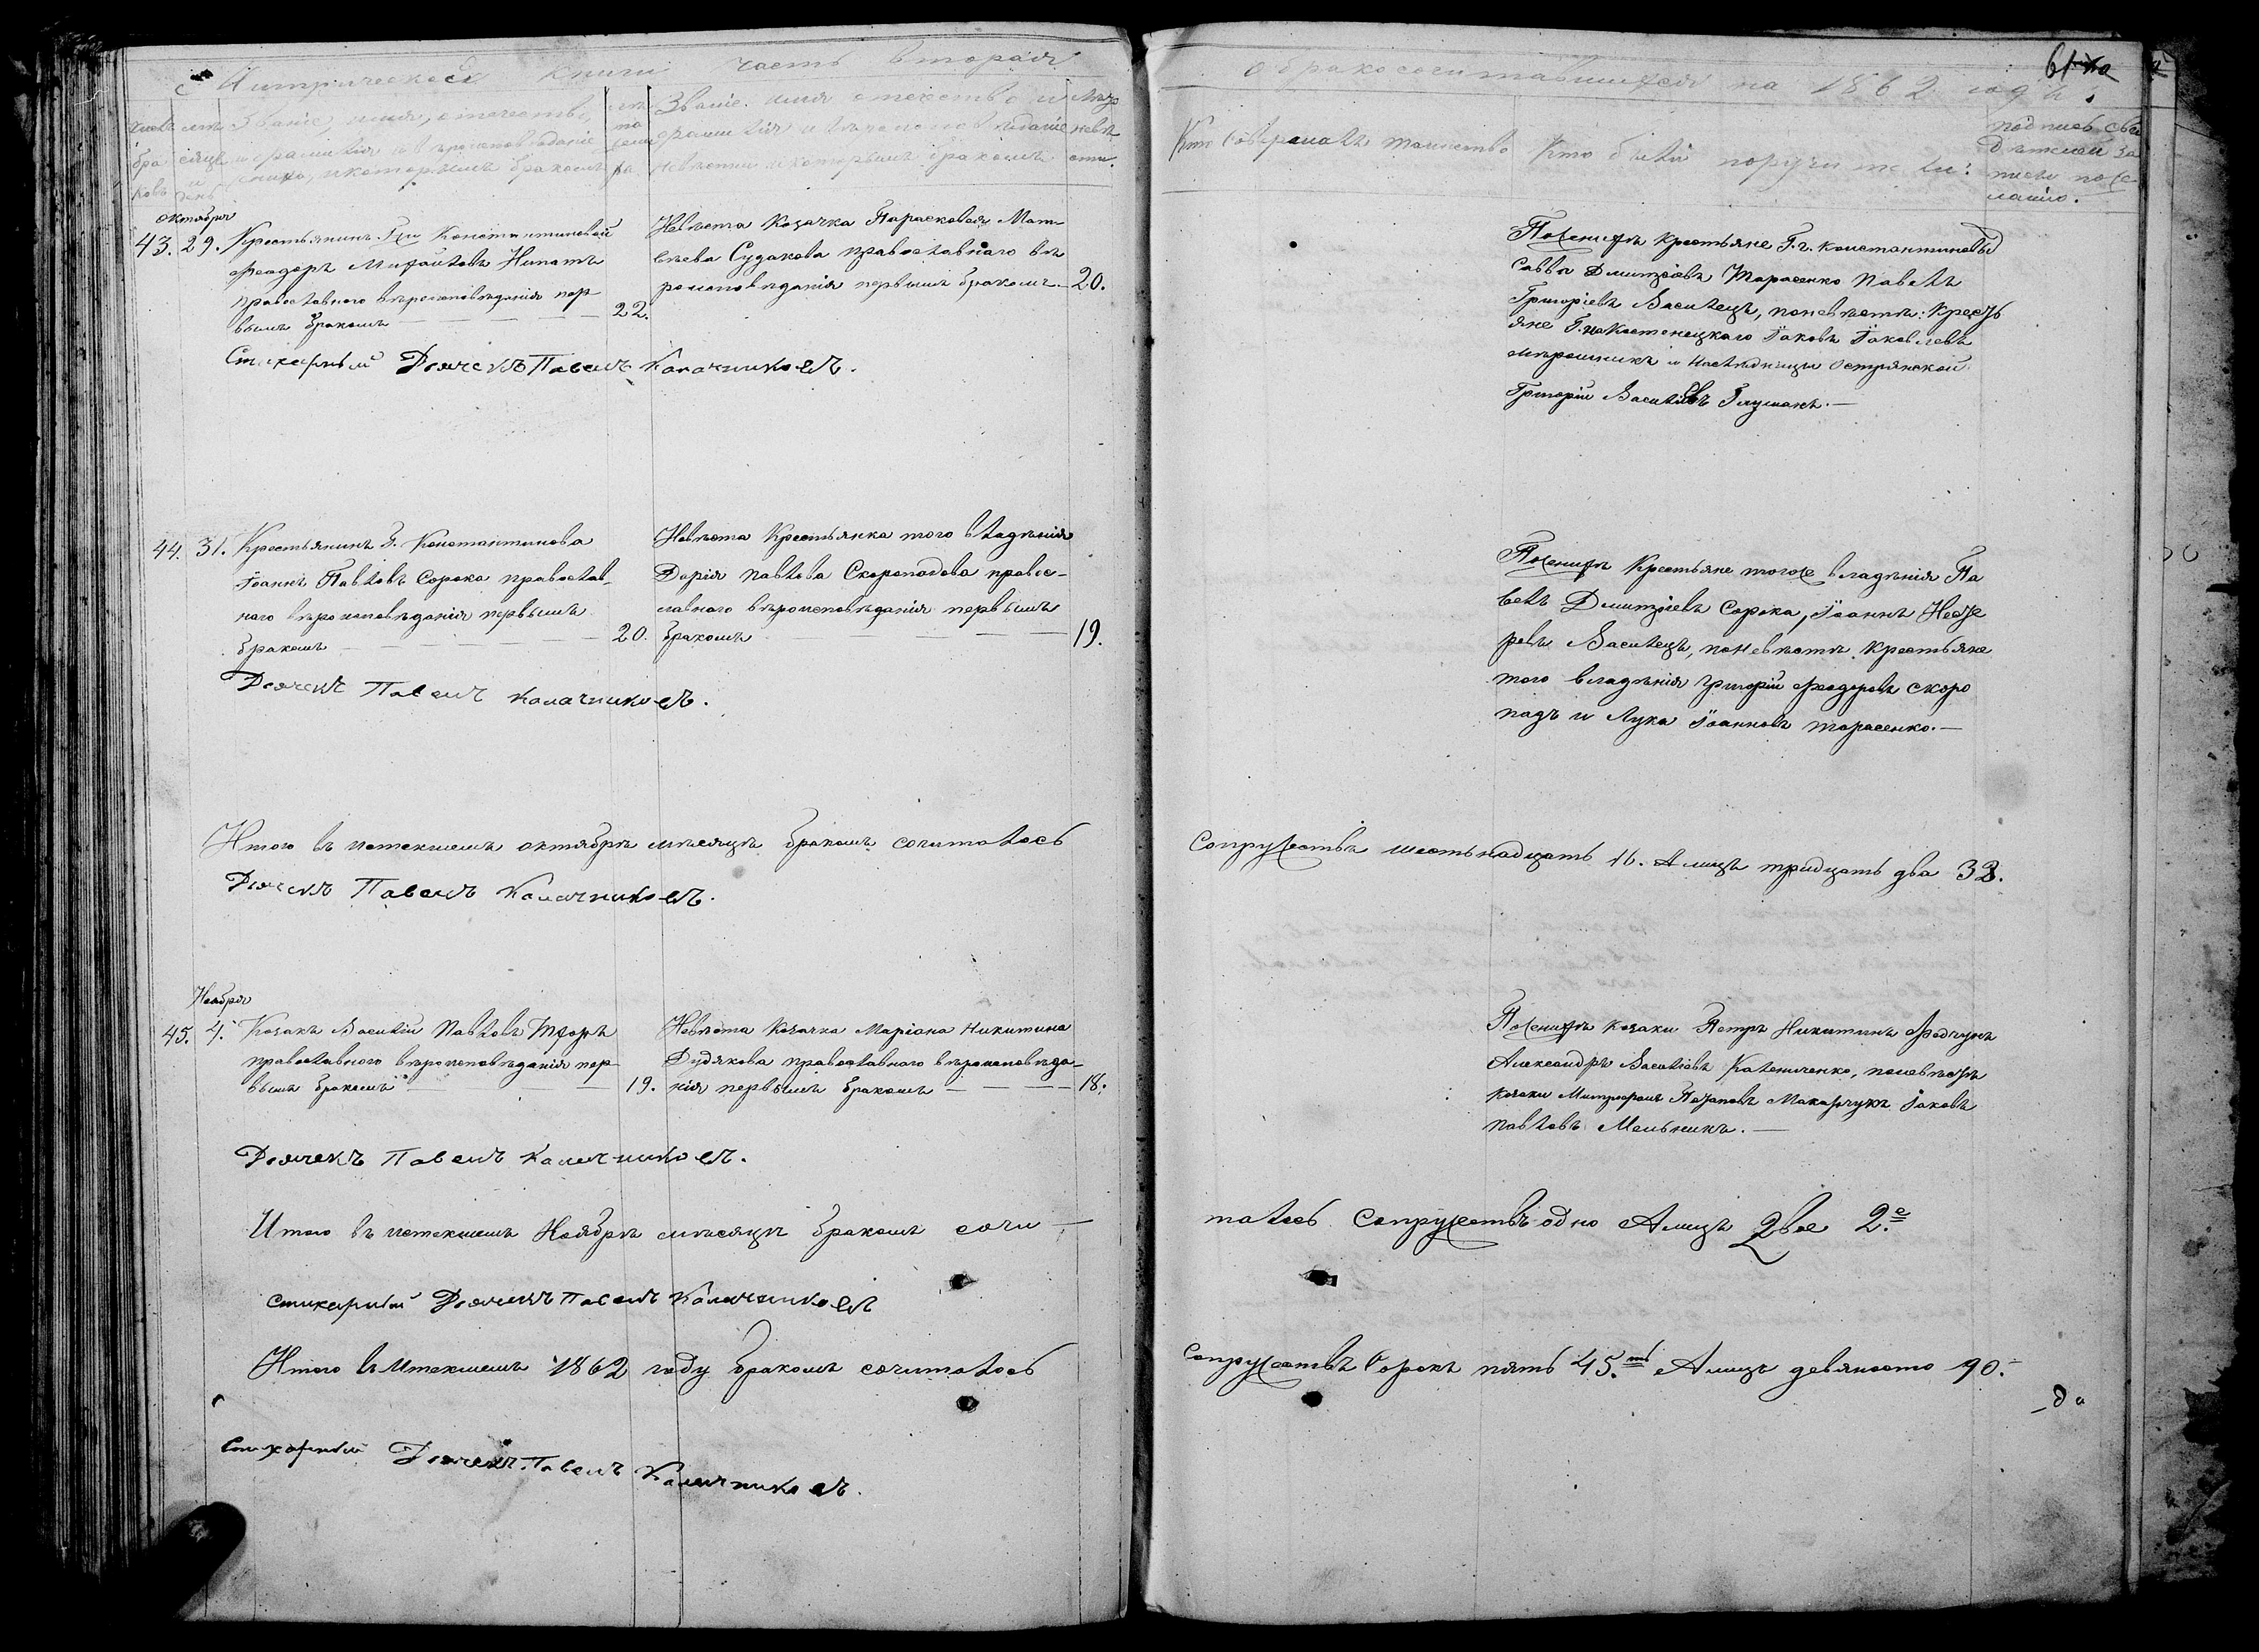 Метрической книги часть вторая
о бракосочитавшихся на 1862 годъ.
61
Званіе, имя, отечество,
и фамилія и вѣроисповѣданіе
жениха, и которымъ бракомъ
Званіе. имя отечество и
фамилія и вѣроисповѣданіе
невѣсты и которымъ бракомъ
Лѣта
невѣ
сты.
Кто совершалъ таинство
Кто были поручители:
подпись сви
дѣтелей за
писи по же
ланію.
октября
43. 29. Крестьянинъ Г-жи Константиновой
Феодоръ Михайловъ Нипатъ
православного вѣроисповѣданія пер
вымъ бракомъ — 22.
Невѣста Козачка Парасковея Мат-
вѣева Судакова православнаго вѣ
роисповѣданія первымъ бракомъ. 20.
Стихарный Дьячекъ Павелъ Калачниковъ.
По женихѣ крестьяне Г. г. Константиновы
Савва Дмитріевъ Тарасенко Павелъ
Григоріевъ Василецъ, по невѣстѣ: Кресть
яне Г. Костенецкаго Іаковъ Іаковлевъ
Мѣрошникъ и наслѣдницы Острянской
Григорій Василіевъ Глушакъ. —
44. 31. Крестьянинъ Г. Константинова
Іоаннъ Павловъ Сорока православ-
наго вѣроисповѣданія первымъ
бракомъ — 20.
Невѣста Крестьянка того владѣнія
Дарія Павлова Скоропадова правос-
лавного вѣроисповѣданія первымъ
бракомъ — 19.
Дьячекъ Павелъ Калачниковъ.
По женихѣ Крестьяне того же владѣнія Па
велъ Дмитріевъ Сорока, Іоаннъ
Василецъ, по невѣстѣ Крестьяне
того владѣнія Григорій Феодоровъ Скоро
падъ и Лука Іоанновъ Тарасенко. —
Итого въ истекшемъ октябрѣ мѣсяцѣ бракомъ сочиталось
супружествъ шестьнадцать 16. А лицъ тридцать два 32.
Дьячекъ Павелъ Калачниковъ.
Ноября
45. 4. Козакъ Василій Павловъ Тхоръ
православного вѣроисповѣданія пер
вымъ бракомъ — 19.
Невѣста Козачка Маріана Никитина
Дудякова православного вѣроисповѣда-
нія первымъ бракомъ — 18.
По женихѣ козаки Петръ Никитинъ Федчунъ
Александръ Василіевъ Калениченко, по невѣстѣ
козаки Митрофанъ Макарчукъ Іаковъ
Павловъ Мельникъ. —
Дьячекъ Павелъ Калачниковъ.
Итого въ истекшемъ Ноябрѣ мѣсяцѣ бракомъ сочи-
талось супружествъ одно А лицъ двое 2.е
стихарный Дьячекъ Павелъ Калачниковъ
Итого въ Истекшемъ 1862 году бракомъ сочиталось
супружествъ Сорокъ пять 45.ть А лицъ девяносто 90.
Стихарный Дьячекъ Павелъ Калачниковъ.